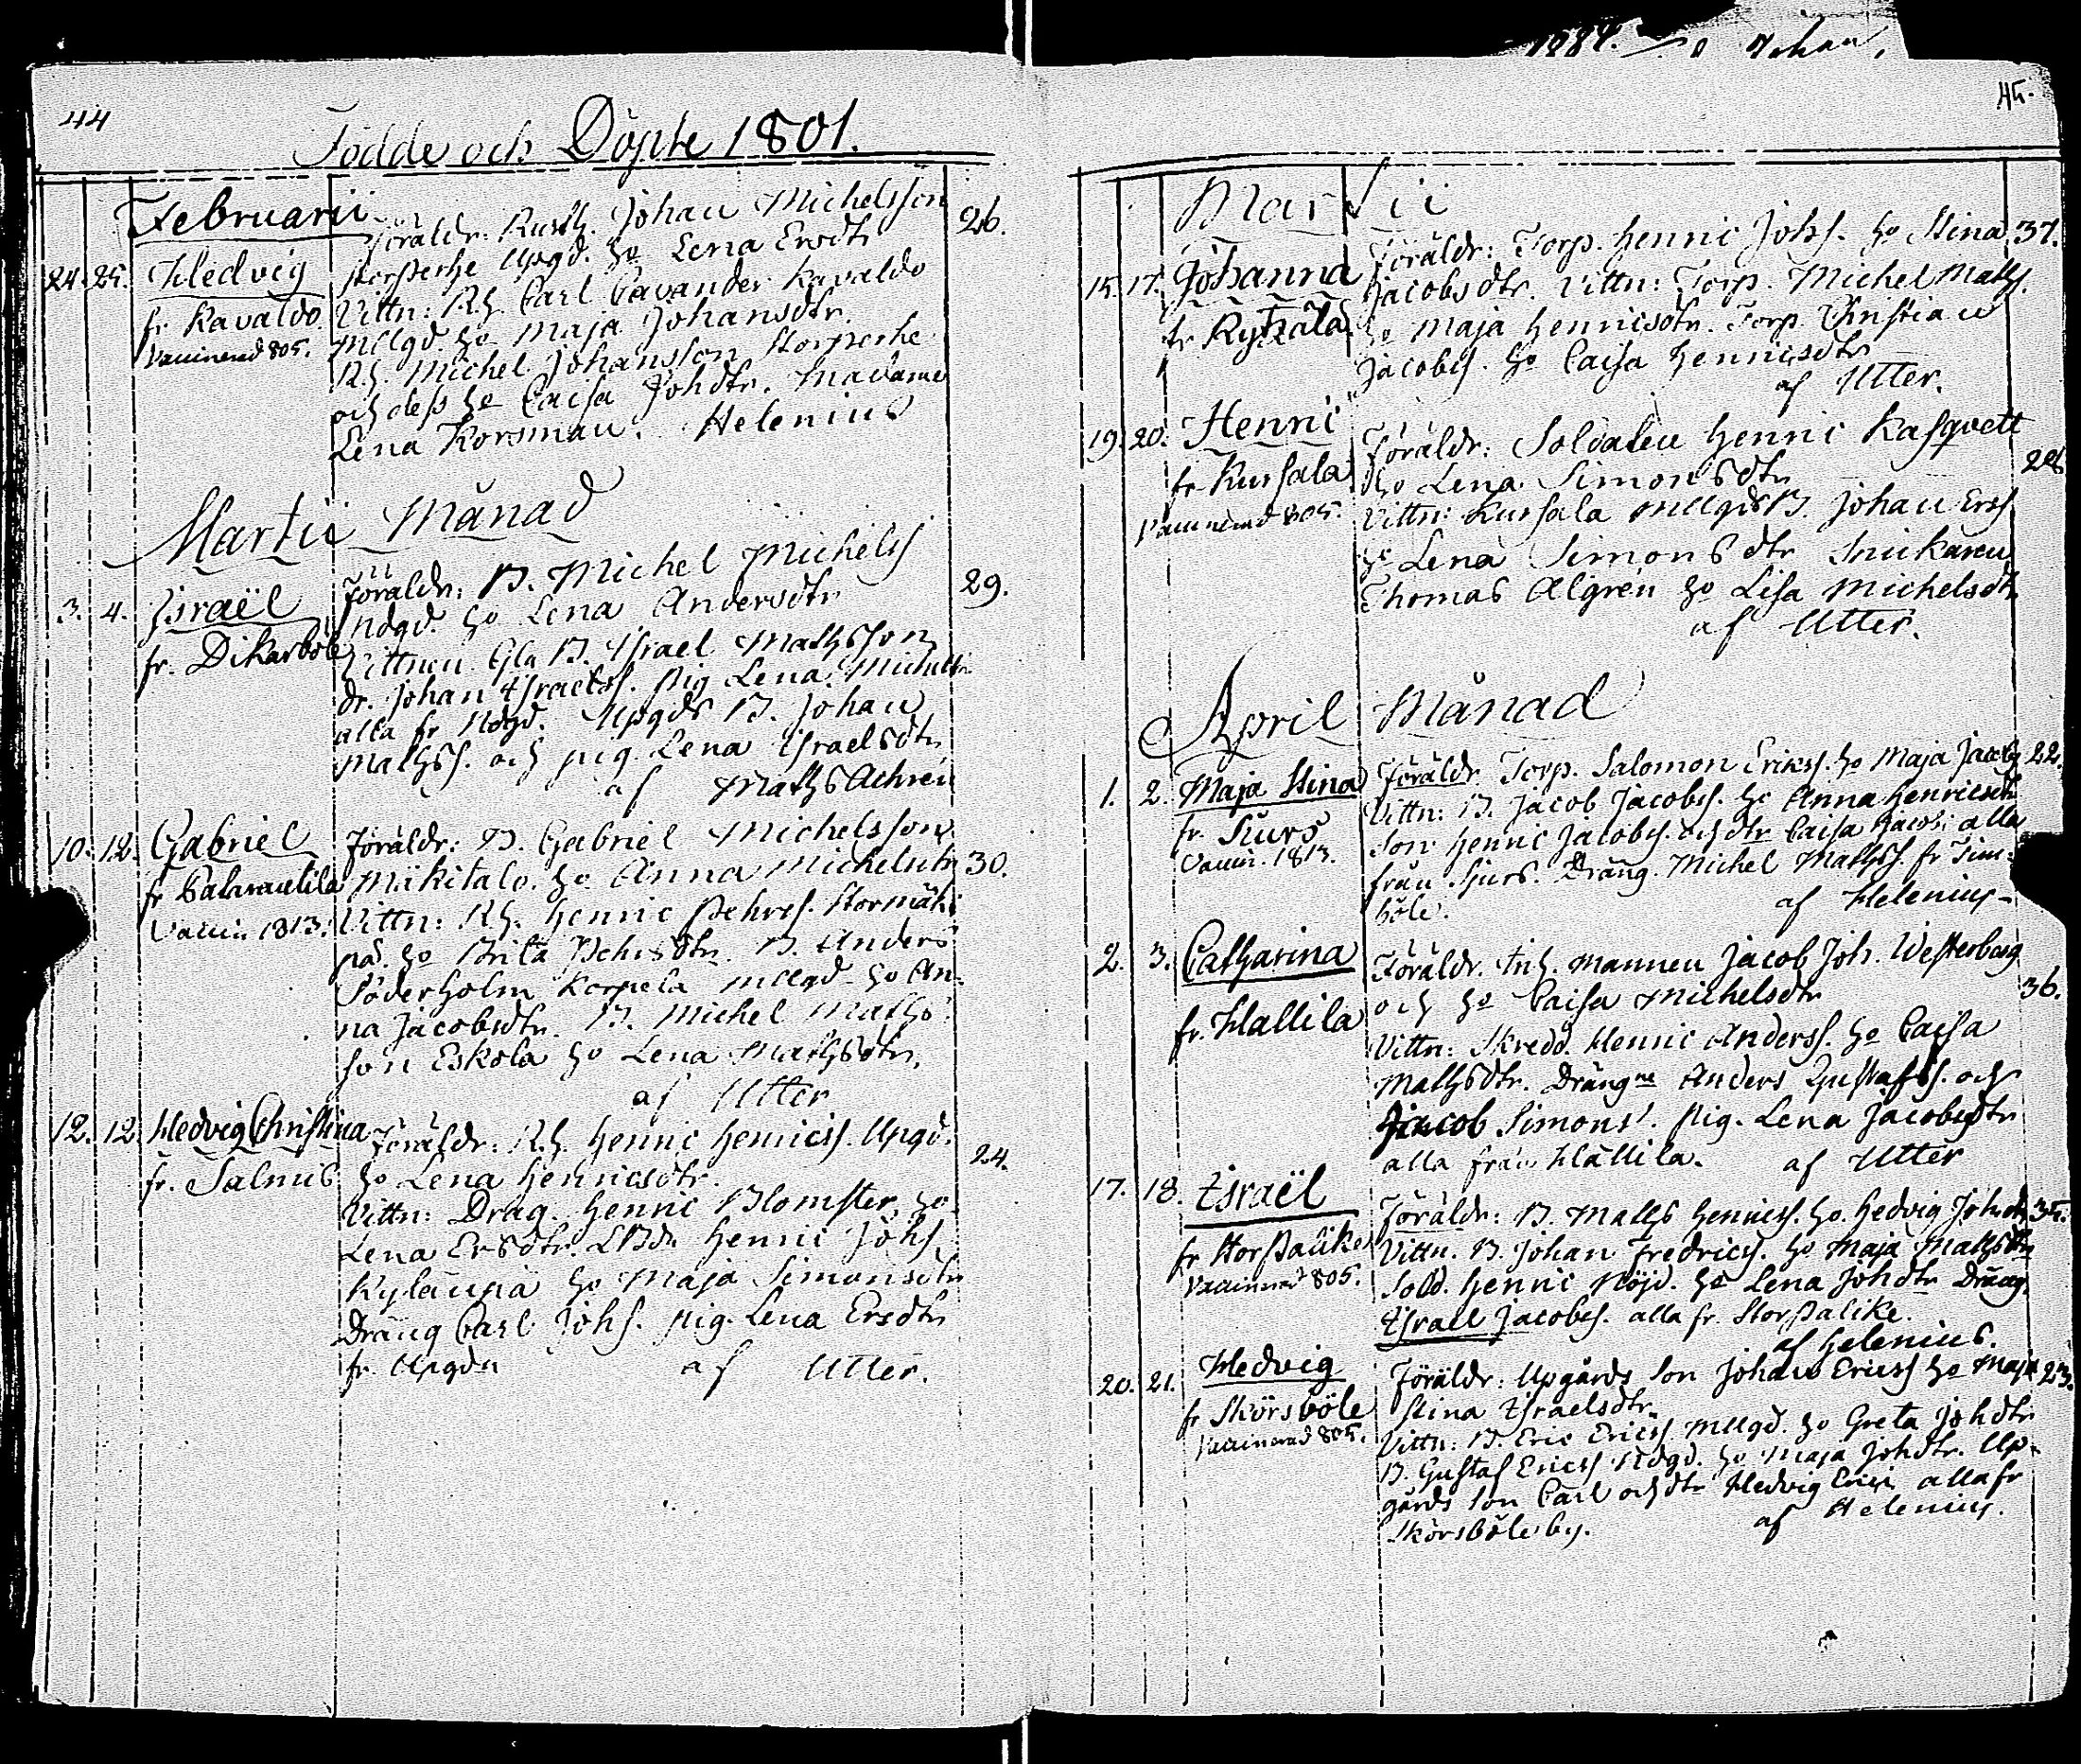 44
Födde och Döpte 1801.
Februarii
24. 25. Hedvig
fr Kavaldo.
Vaccinerad 805.
Föräldr: Rusth. Johan Michelsson
Storperhe Upgd. ho Lena Ersdtr
Vittn: Rh. Carl Cavander Kavaldo
Mllgd. ho Maja Johansdtr.
Rh. Michel Johansson Storperhe
och dess ho Caisa Johdtr. Madame
Lena Korsman. Helenius
26.
Martii Månad
3. 4. Israël
fr. Dikarböle
Föräldr: B. Michel Michelss
Ndgd. ho Lena Andersdtr
Vittnen Gla B. Israel Mathsson
dr. Johan Israelss. pig Lena
alla fr Ndgd. Upgds B. Johan
Mathss. och pig. Lena Israelsdtr
af Maths Achrén
29.
10. 12. Gabriel
fr
Vaccin. 1813.
Föräldr: B. Gabriel Michelsson
Mäkitalo. ho Anna Michelsdtr
Vittn: Rh. Henric Pehrss. Stormäki
på. ho Brita Pehrsdtr. B. Anders
Söderholm Korpela Mllgd ho An-
na Jacobsdtr. B. Michel Maths
son Eskola ho Lena Mathsdtr,
af Utter
30.
12. 12 Hedvig Christina
fr. Salmis
Föräldr: Rh. Henric Henricss. Upgd.
ho Lena Henricsdtr.
Vittn: Drag. Henric Blomster, ho
Lena Ersdtr. Henric Johs
Kylänpä ho Maja Simonsdtr
Dräng Carl Johs. pig. Lena Ersdtr
fr. Upgdn af Utter.
24.
1884. Johan,
45.
Martii
15. 17. Johanna
fr Kyttälä.
Föräldr: Torp. Henric Johs. ho Stina
Jacobsdtr. Vittn: Torp. Michel Maths.
ho Maja Henricsdtr. Torp. Christian
Jacobss. ho Caisa Henricsdtr
af Utter.
37.
19. 20. Henric
fr. Kursala
Vaccinerad 805.
Föräldr: Soldaten Henric Kasqvett
ho Lena Simonsdtr
Vittn: Kursala Mllgds B. Johan Erss
ho Lena Simonsdtr Snickaren
Thomas Algrén ho Lisa Michelsdtr
af Utter.
April Månad
1. 2. Maja Stina
fr. Siurs
Vaccin. 1813.
Föräldr Torp. Salomon Erikss. ho Maja Jacobs
Vittn: B. Jacob Jacobss. ho Anna Henricsdtr
Son Henric Jacobss. och dtr Caisa Jacobs alla
från Sjurs. Dräng. Michel Mathss. fr Tim-
böle. af Helenius
22.
2. 3. Catharina
fr. Hallila
Föräldr. Trh. mannen Jacob Joh. Westerberg
och ho Caisa Michelsdtr
Vittn: Skredd. Henric Anderss. ho Caisa
Mathsdtr. Drängne Anders Gustafss. och
Jacob Simons. pig. Lena Jacobsdtr
alla från Hallila. af Utter
36.
17. 18. Israël
fr Storsalike
Vaccinerad 805.
Föräldr: B. Maths Henricss. ho. Hedvig Johsdtr
Vittn. B. Johan Fredricss. ho Maja Mathsdtr
Sold. Henric Nöjd. ho Lena Johdtr Dräng.
Israel Jacobss. alla fr. Storsalike.
af Helenius.
35.
20. 21. Hedvig
fr Skörsböle
Vaccinerad 805.
Föräldr: Upgårds Son Johan Ericss ho Maja
Stina Israelsdtr.
Vittn: B. Eric Ericss Mllgd. ho Greta Johdtr
B. Gustaf Ericss Ndgd. ho Maja Johdtr. Up-
gårds son Carl och dtr Hedvig Erics alla fr
Skörsböle by. af Helenius.
23.